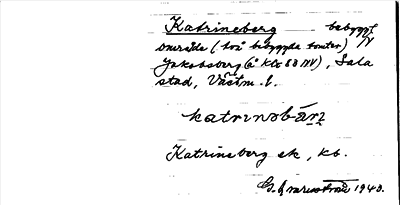 Katrineberg bebyggt
område (två bebyggda tomter)
Jakobsberg (ek. kbl 88 NV), Sala
stad, Västm. l.
katrinəbärj
Katrineberg ek, kb.
1940.